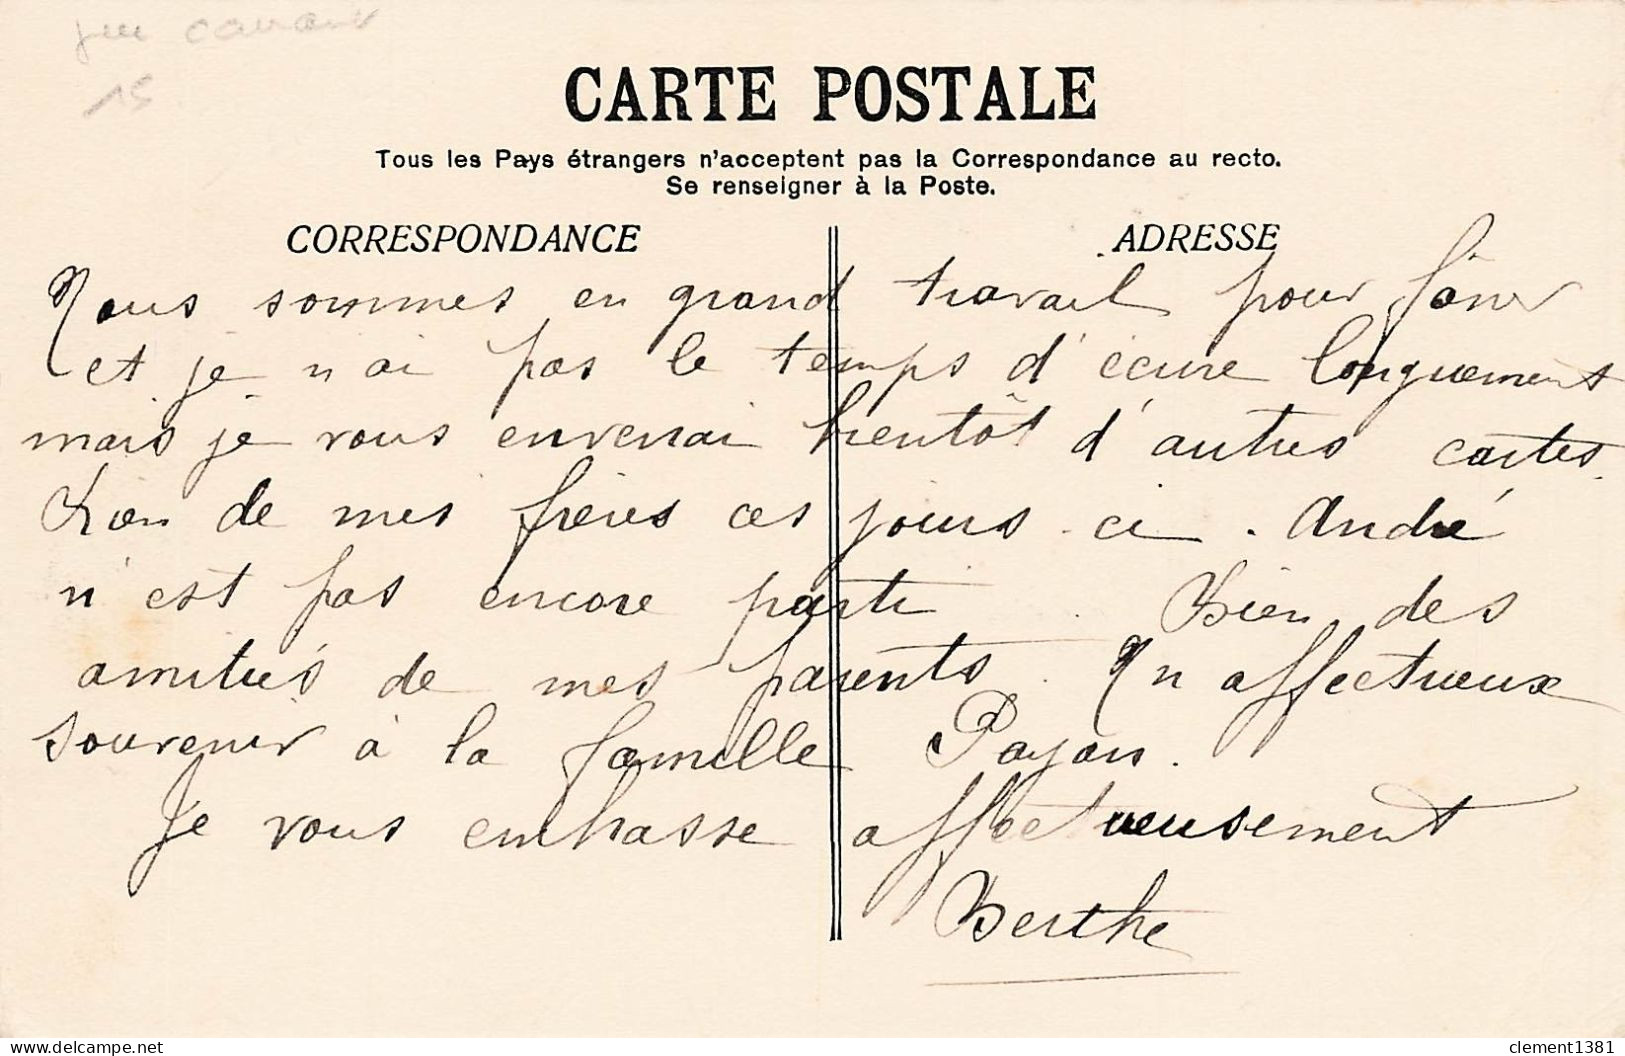 15
CARTE POSTALE
Tous les Pays étrangers n'acceptent pas la Correspondance au recto.
Se renseigner à la Poste.
CORRESPONDANCE
ADRESSE
Nous sommes en grand travail pour fâner
et je n'ai pas le temps d'écrire longuement
mais je vous enverrai bientôt d'autres cartes.
Rien de mes frères ces jours-ci. André
n'est pas encore parti. Bien des
amitiés de mes parents. Un affectueux
souvenir à la famille Payan.
Je vous embrasse affectueusement
Berthe
clement1381